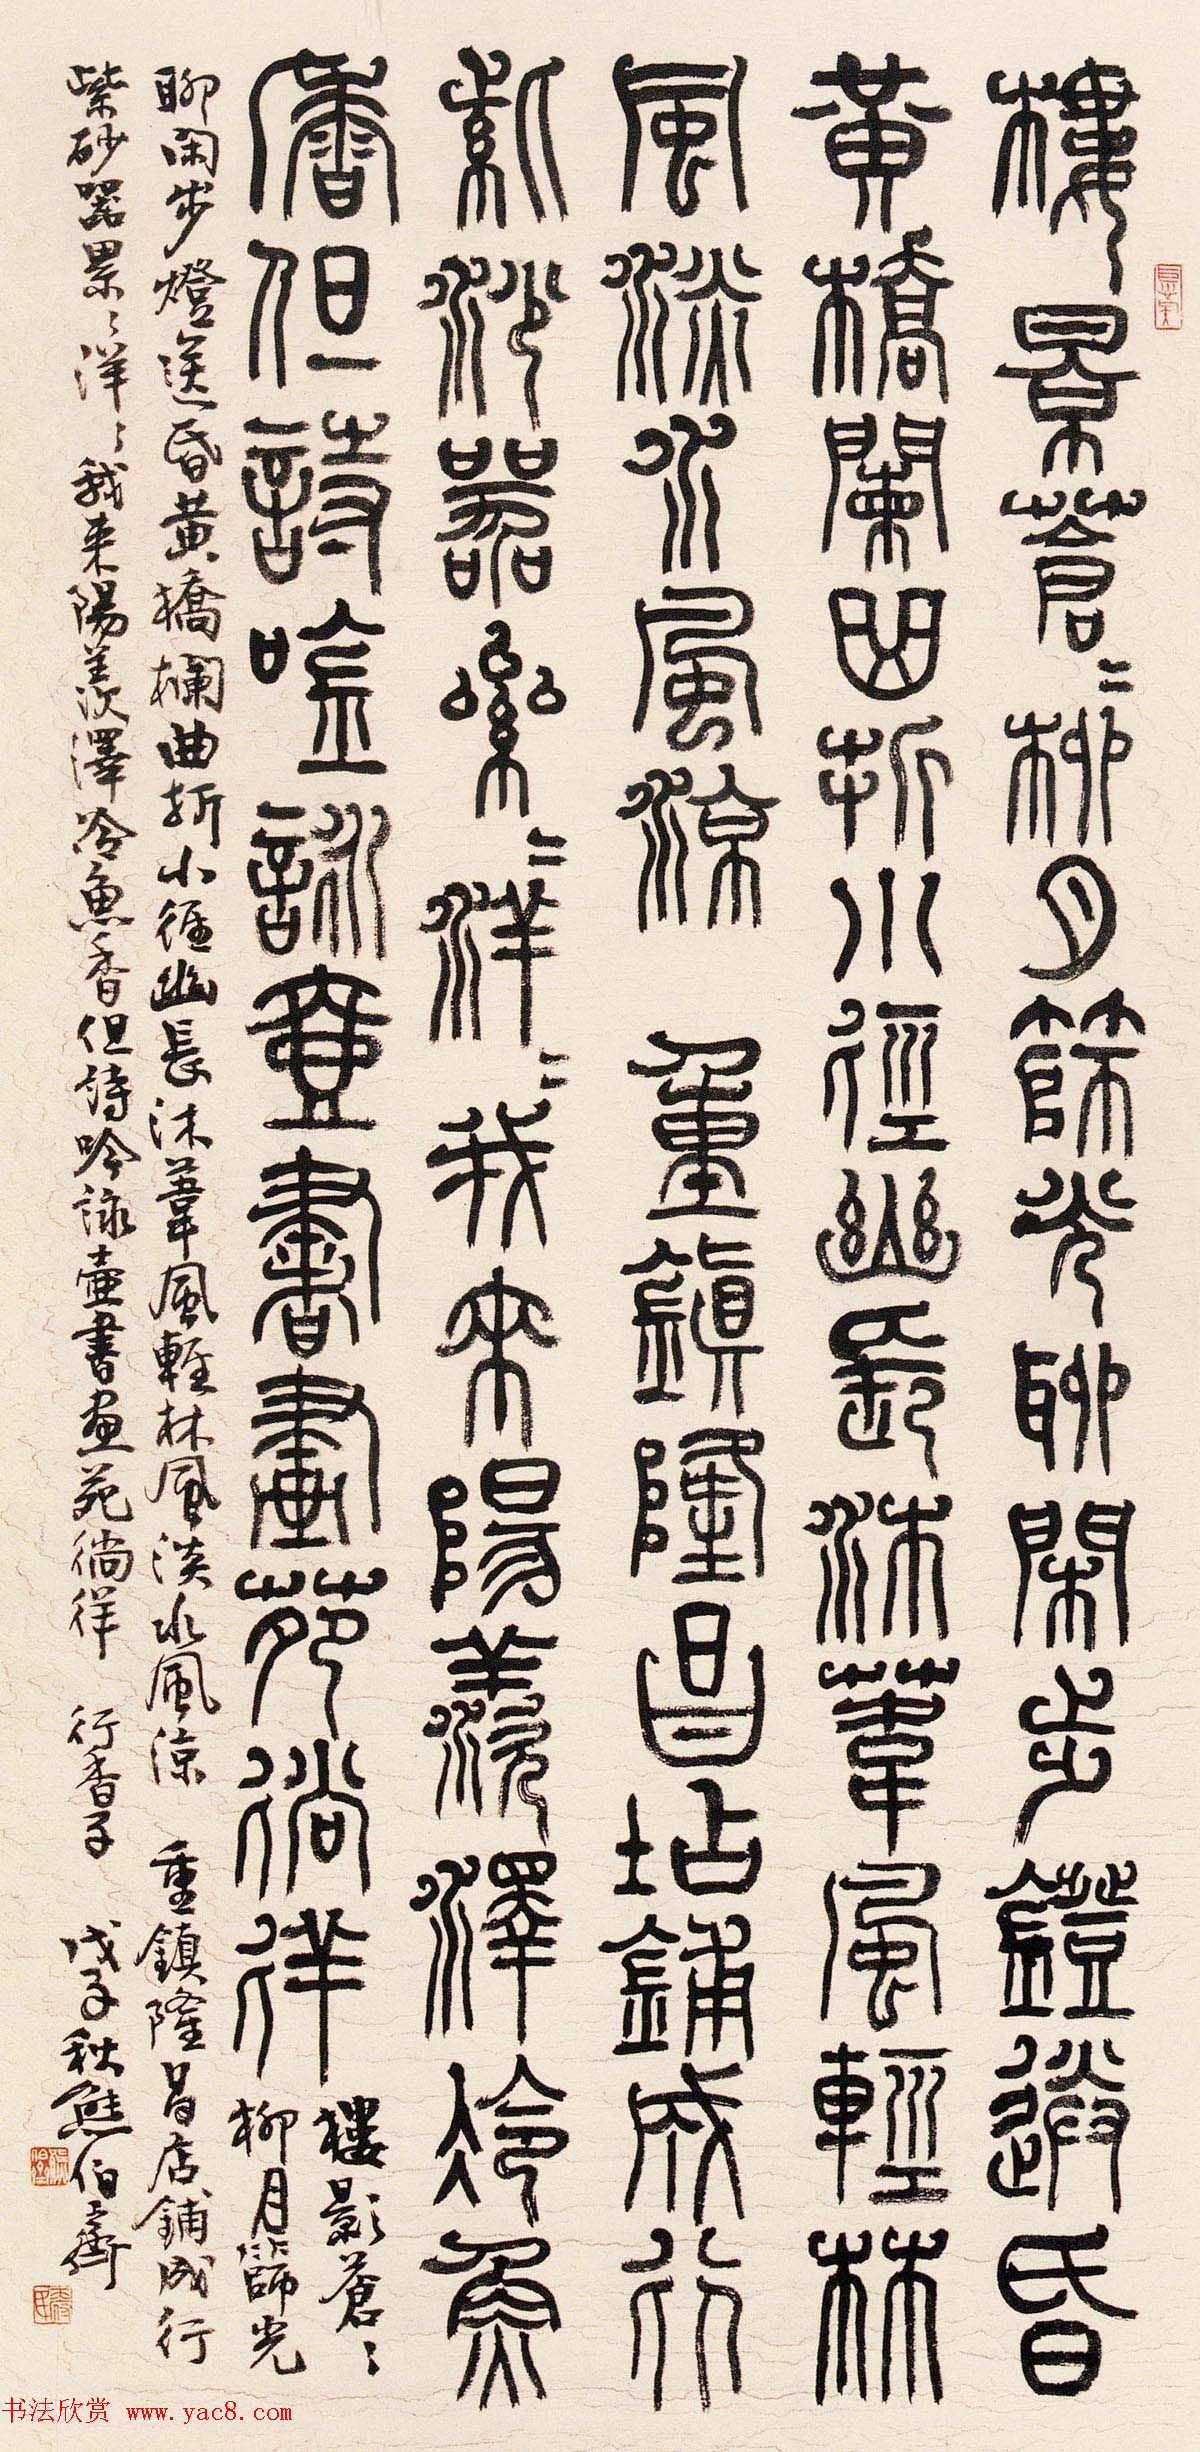 樓景蒼〻柳月篩光聊閑步鐙送昏
黃橋闌曲折小徑幽長沐葦風輕林
風淡水風涼 重鎮隆昌坫鋪成行
紫沙器纍〻洋〻我來陽羨澤冷魚
香但詩唫詠壺書畫苑徜徉
樓影蒼〻
柳月篩光
聊閑步燈送昏黃橋欄曲折小徑幽長沐葦風輕林風淡水風涼 重鎮隆昌店鋪成行
紫砂器累〻洋〻我来陽羨澤冷魚香但詩吟詠壺書画苑徜徉 行香子 戊子秋熊伯齊
书法欣赏 www.yac8.com